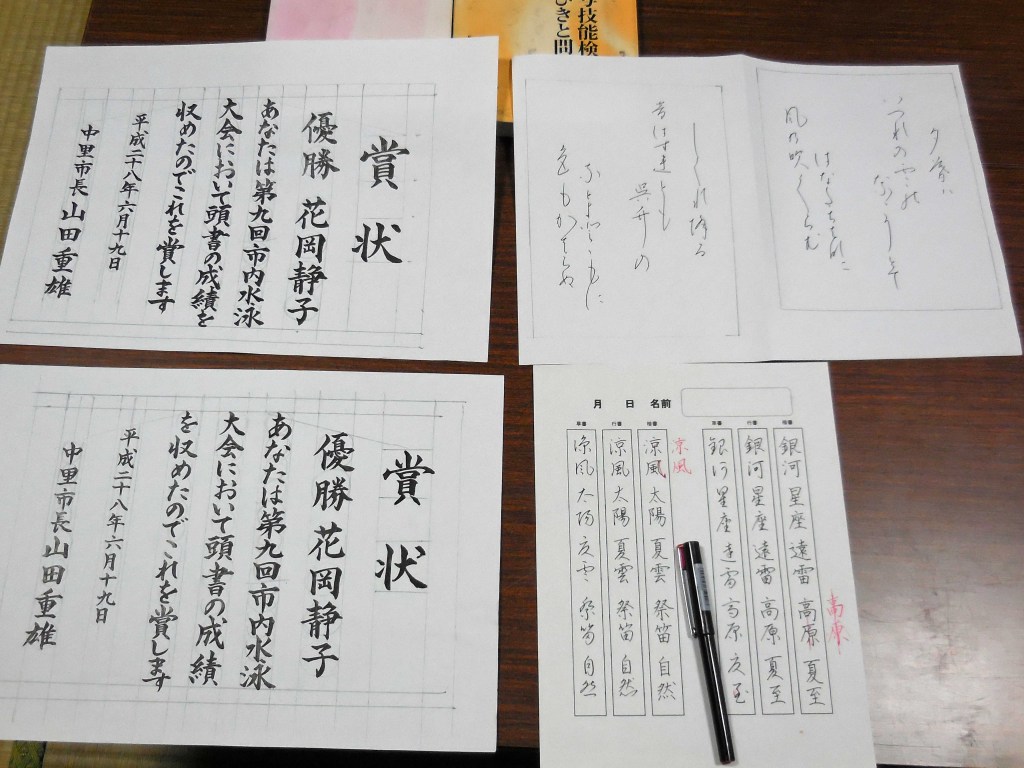 字技能検
びきと問
賞状
優勝 花岡静子
あなたは第九回市内水泳
大会において頭書の成績を
収めたのでこれを賞します
平成二十八年六月十九日
中里市長 山田重雄
賞状
優勝 花岡静子
あなたは第九回市内水泳
大会において頭書の成績
を収めたのでこれを賞します
平成二十八年六月十九日
中里市長 山田重雄
風の吹くらむ
しぐれ降る
音はすれども
呉竹の
色もかはらぬ
月 日 名前
楷書
銀河 星座 遠雷 高原 夏至
高原
行書
銀河 星座 遠雷 高原 夏至
草書
銀河 星座 遠雷 高原 夏至
涼風
楷書
涼風 太陽 夏雲 祭笛 自然
行書
涼風 太陽 夏雲 祭笛 自然
草書
涼風 太陽 夏雲 祭笛 自然